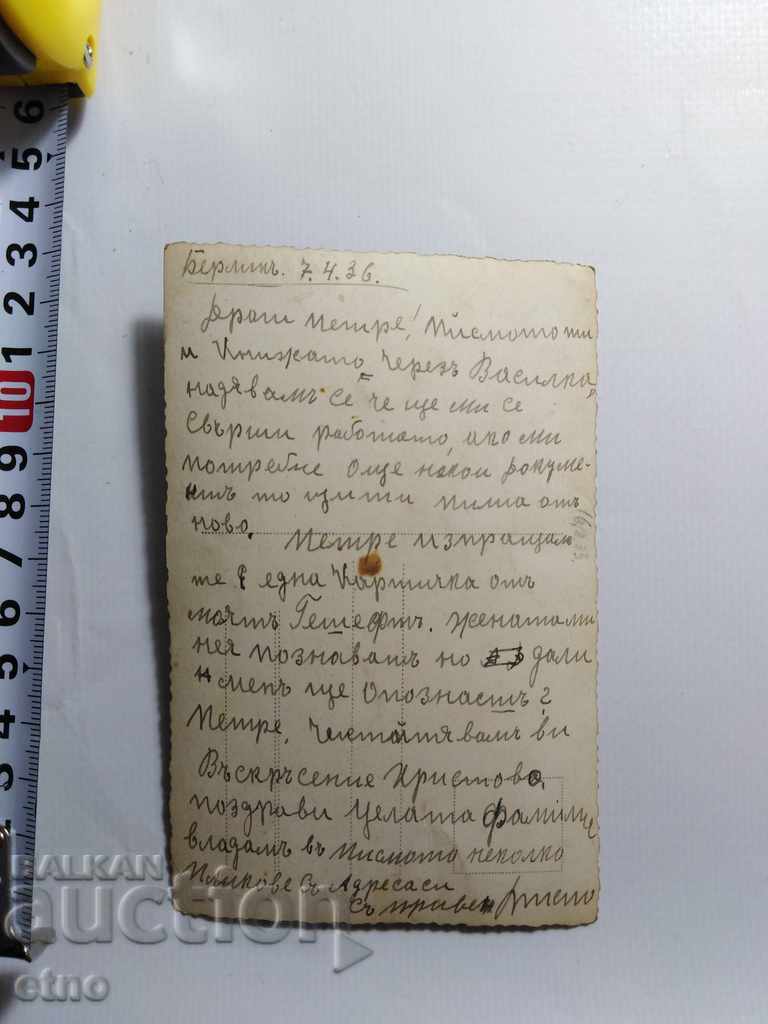 Берлинъ. 7.4.36.
Драги Петре! Писмото ти
и Книжката Черезъ Василка,
надявамъ се че ще ми се
свърши работата, ако ми
потребне още некои докуме-
нтъ то щити пиша отъ
ново.
Петре изпращам
те една Картичка отъ
моятъ Гешефтъ. жената ми
нея познаватъ но дали
и менъ ще Опознаетъ?
Петре, Честитявамъ ви
Възкръсение Христово.
поздрави Целата фамилие
владамъ въ писмото неколко
Пликове Съ Адреса си
Съ привет
6
5
4
3
2
1
10
9
8
7
6
5
4
3
BALKAN
auction
etno